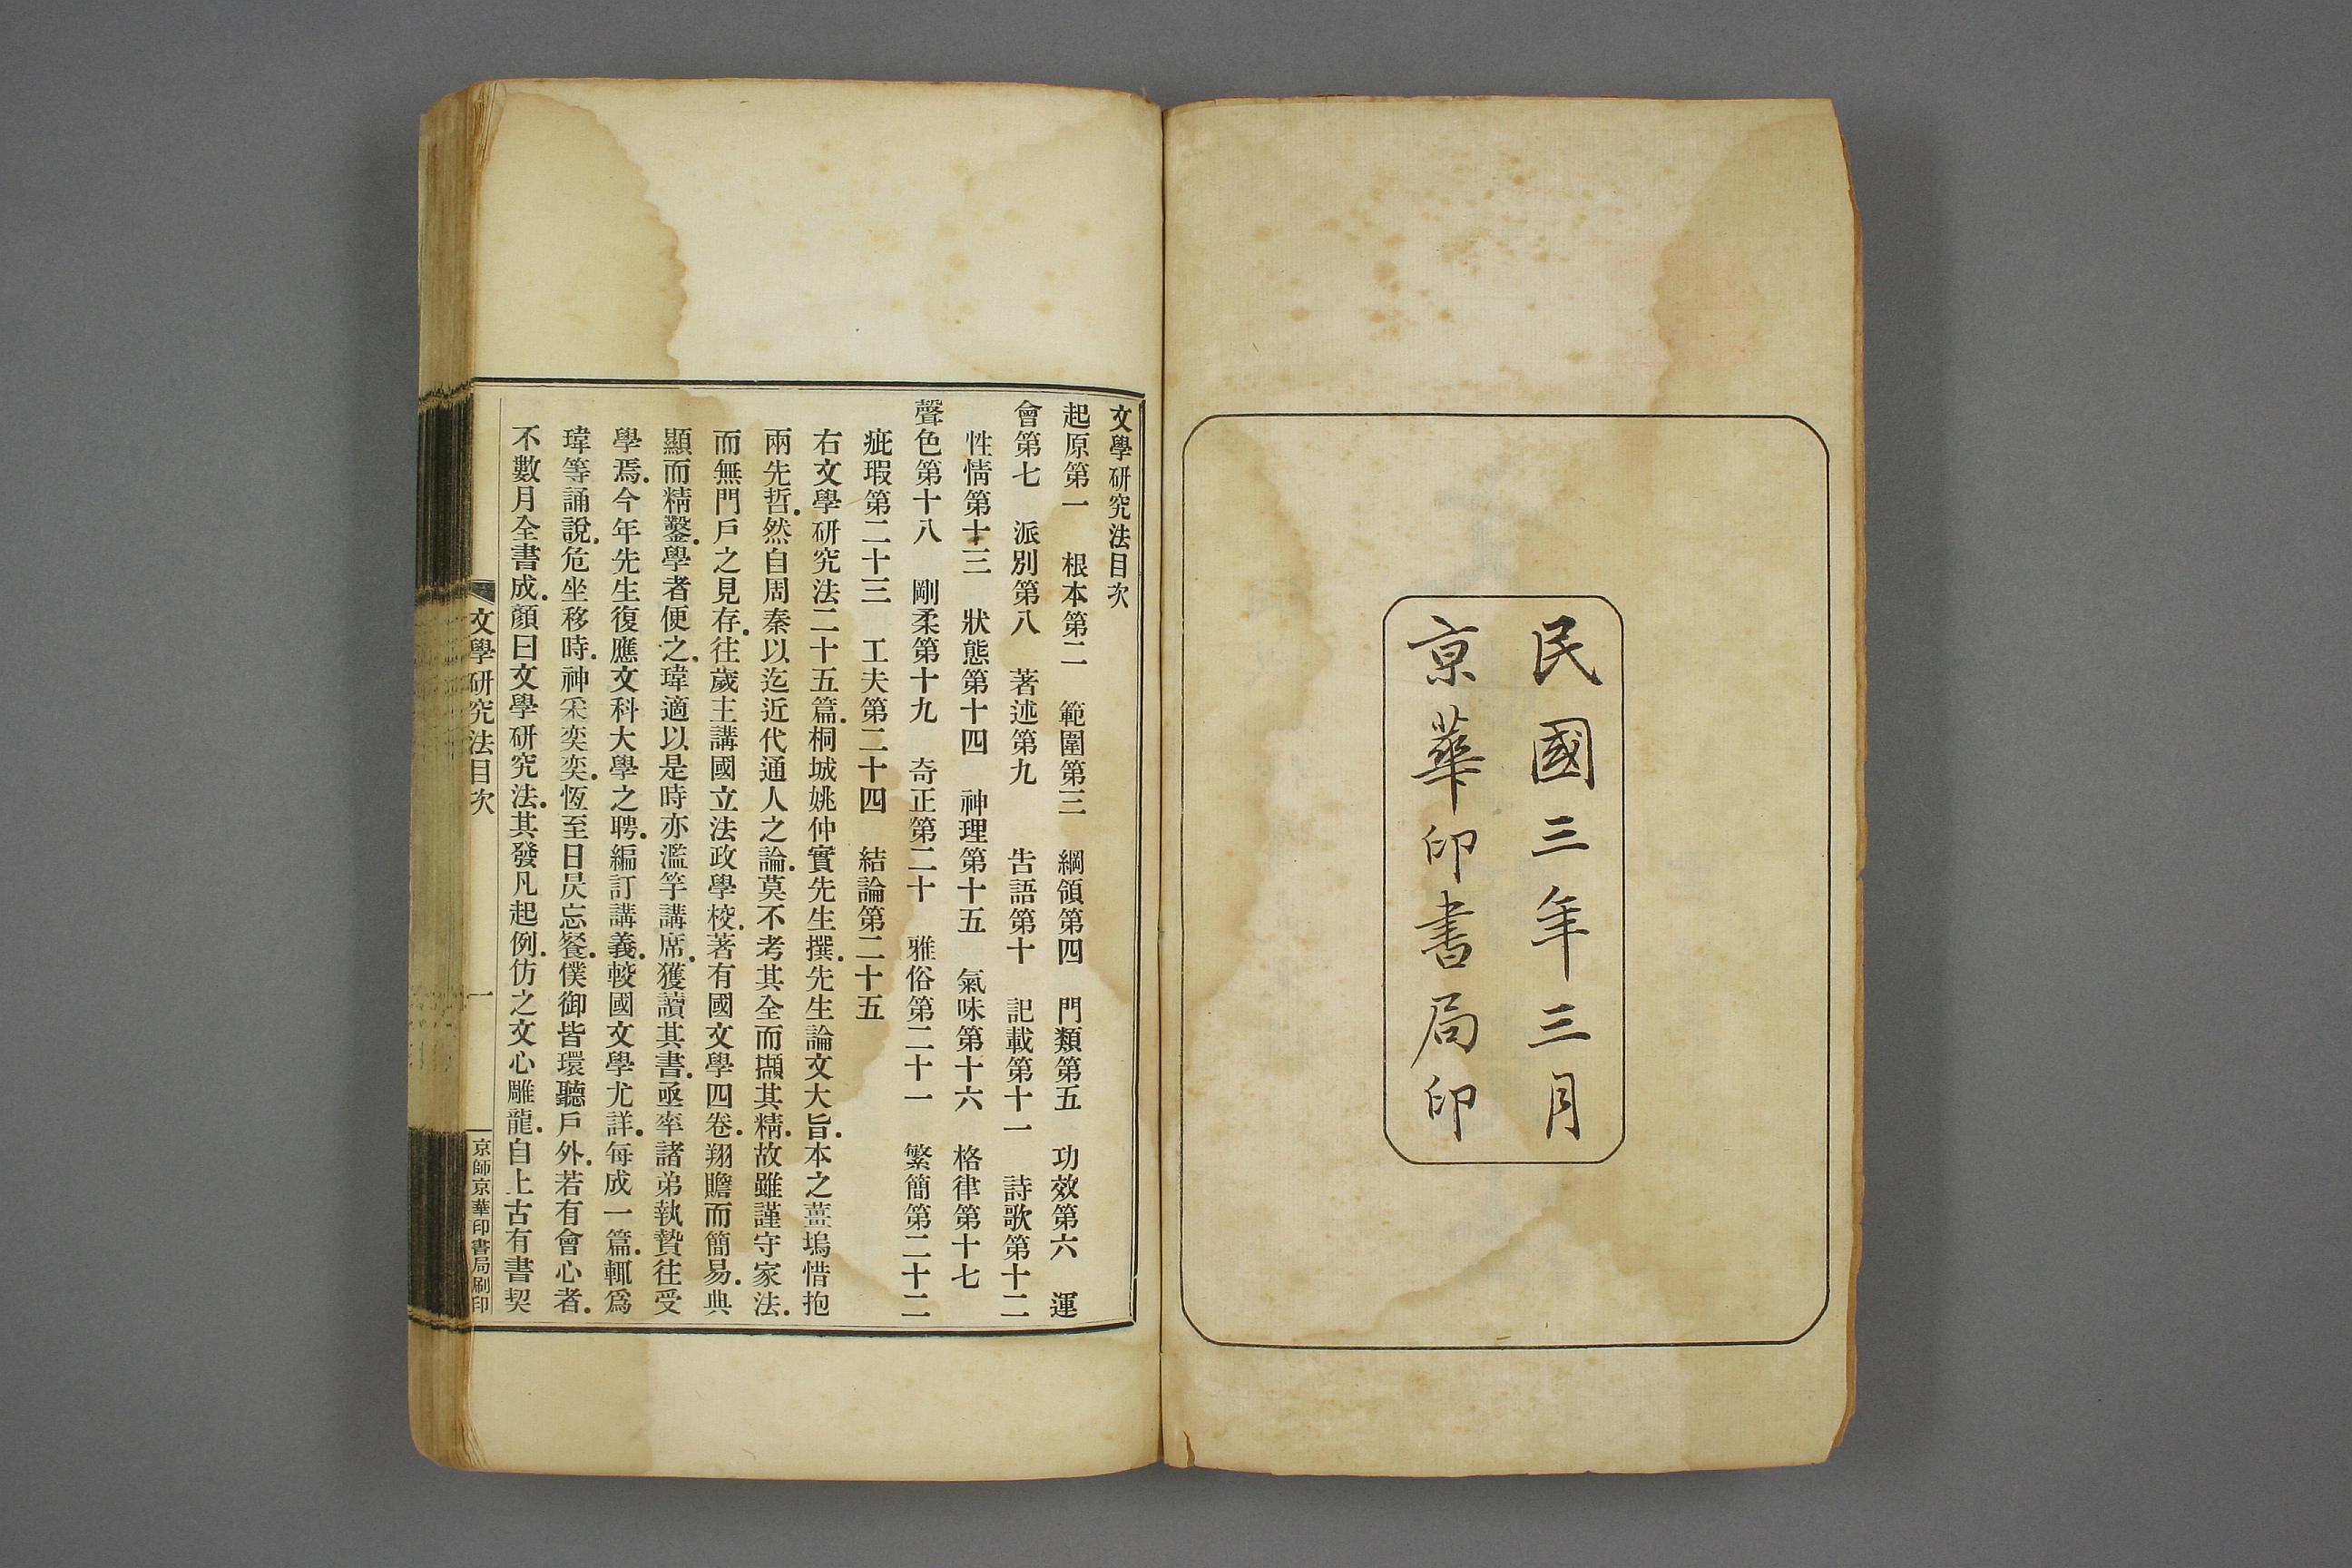 民國三年三月
京華印書局印
文學研究法目次
起原第一　根本第二　範圍第三　綱領第四　門類第五　功效第六　運
會第七　派別第八　著述第九　告語第十　記載第十一　詩歌第十二
性情第十三　狀態第十四　神理第十五　氣味第十六　格律第十七
聲色第十八　剛柔第十九　奇正第二十　雅俗第二十一　繁簡第二十二
疵瑕第二十三　工夫第二十四　結論第二十五
右文學研究法二十五篇．桐城姚仲實先生撰．先生論文大旨．本之薑塢惜抱
兩先哲．然自周秦以迄近代通人之論．莫不考其全而擷其精．故雖謹守家法．
而無門戶之見存．往歲主講國立法政學校．著有國文學四卷．翔贍而簡易．典
顯而精鑿．學者便之．瑋適以是時亦濫竽講席．獲讀其書．亟率諸弟執贄往受
學焉．今年先生復應文科大學之聘．編訂講義．較國文學尤詳．每成一篇．輒爲
瑋等誦說．危坐移時．神采奕奕．恆至日昃忘餐．僕御皆環聽戶外．若有會心者．
不數月全書成．顏曰文學研究法．其發凡起例．仿之文心雕龍．自上古有書契
文學研究法目次
一
京師京華印書局刷印